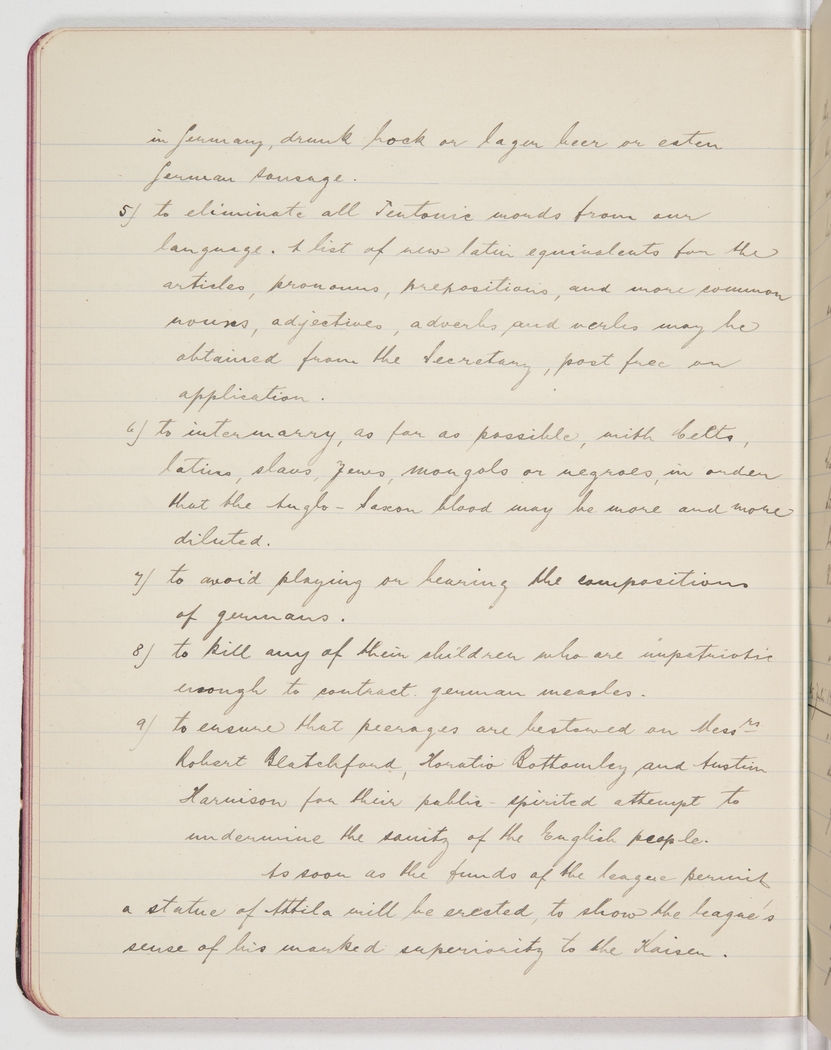 in Germany, drunk hock or lager beer or eaten
German sausage.
5) to eliminate all Teutonic words from our
language. A list of new latin equivalents for the
articles, pronouns, prepositions, and more common
nouns, adjectives, adverbs and verbs may be
obtained from the Secretary, post free on
application.
6) to intermarry, as far as possible, with Celts,
latins, slavs, Jews, mongols or negroes, in order
that the Anglo-Saxon blood may be more and more
diluted.
7) to avoid playing or hearing the compositions
of germans.
8) to kill any of their children who are unpatriotic
enough to contract german measles.
9) to ensure that peerages are bestowed on Messrs
Robert Blatchford, Horatio Bottomley and Austin
Harrison for their public-spirited attempt to
undermine the sanity of the English people.
As soon as the funds of the league permit
a statue of Attila will be erected, to show the league's
sense of his marked superiority to the Kaiser.